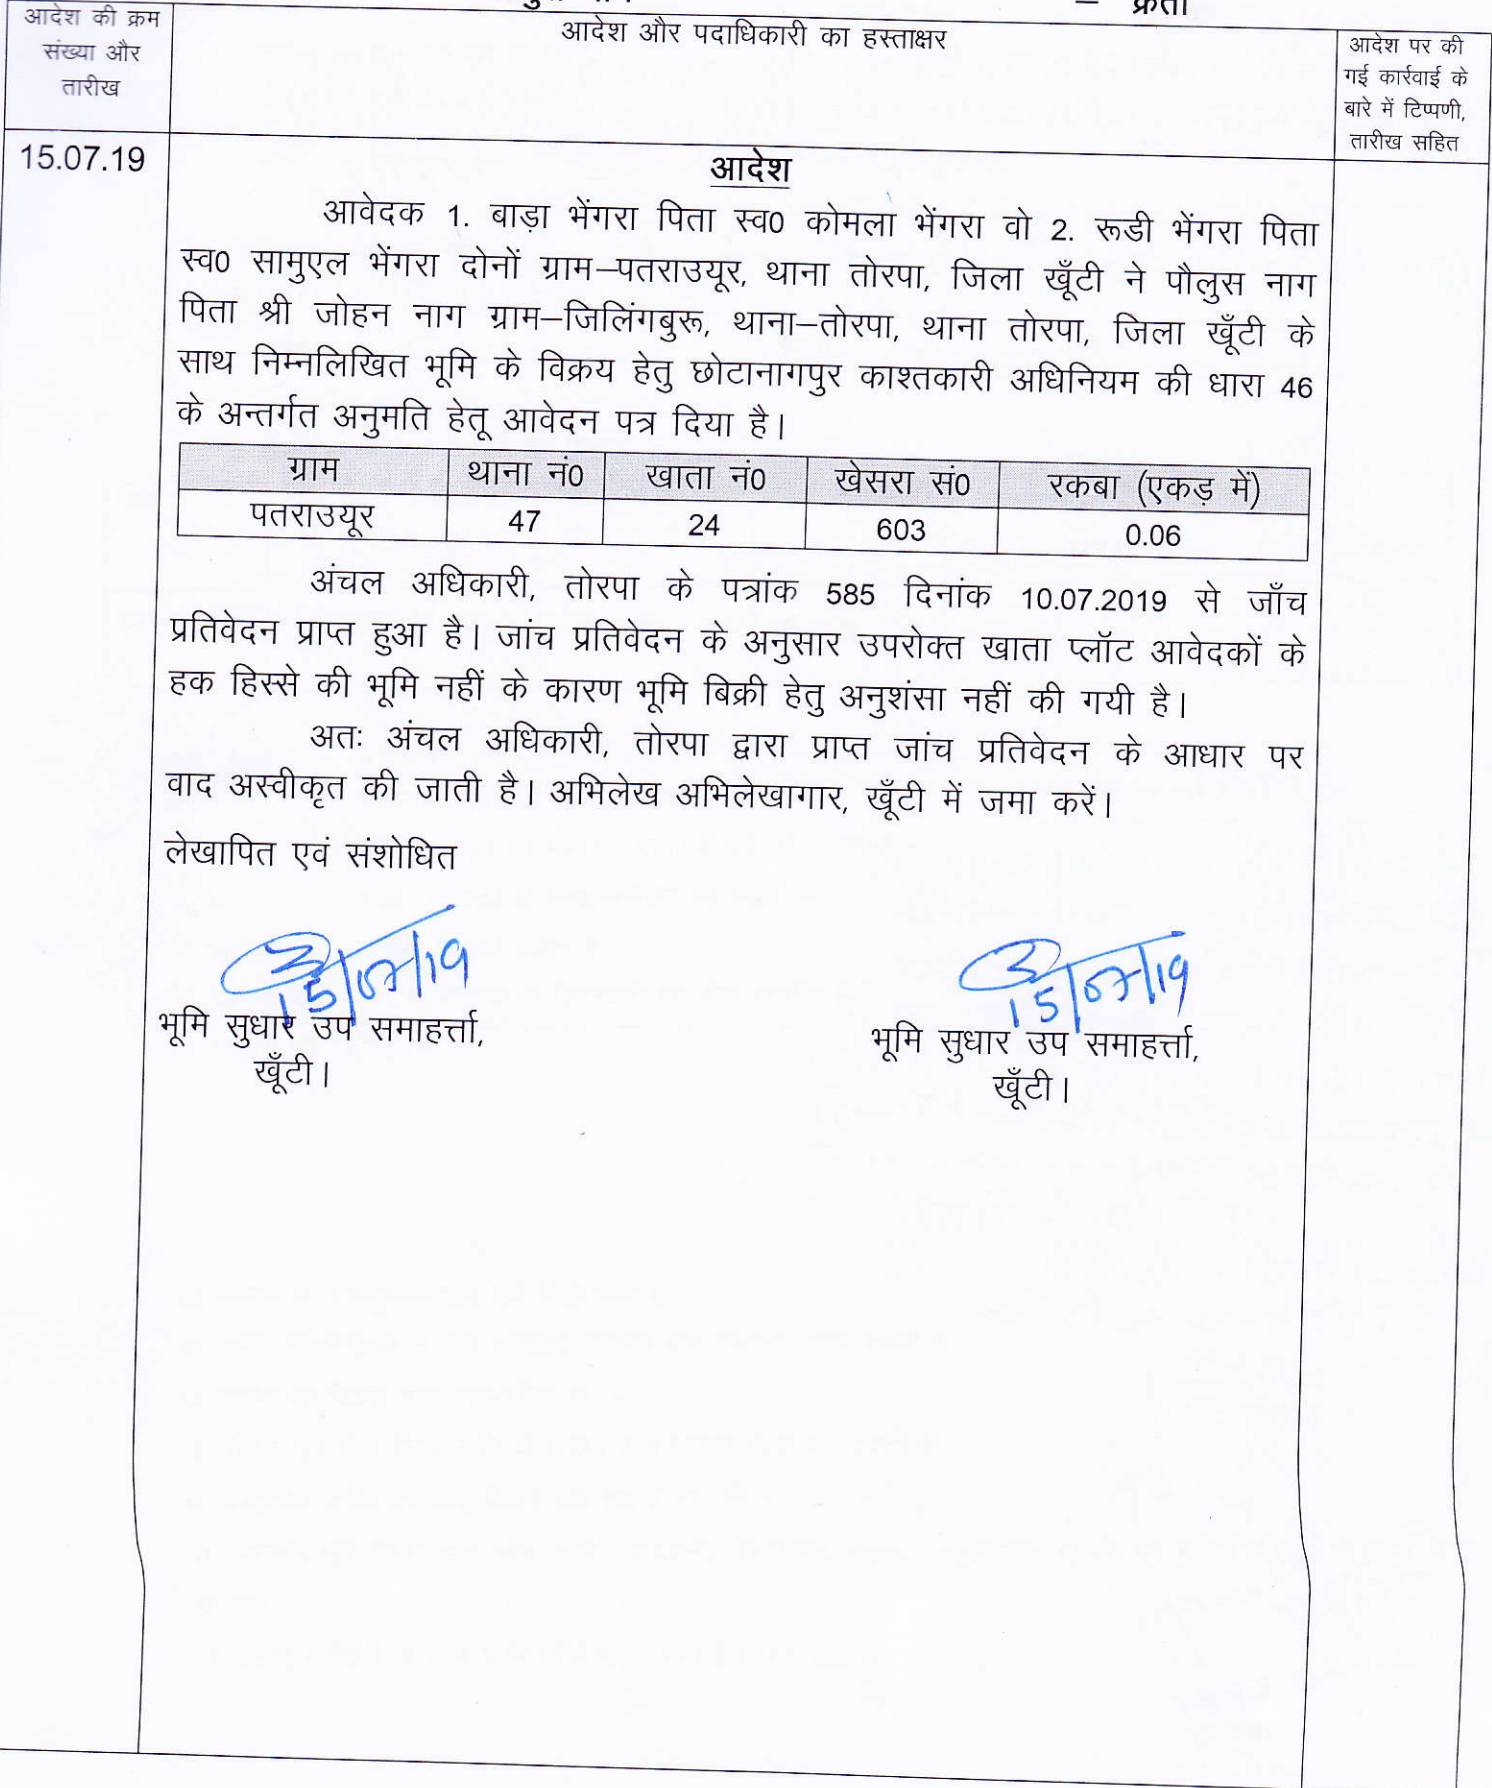 – क्रेता
आदेश की क्रम
संख्या और
तारीख
आदेश और पदाधिकारी का हस्ताक्षर
आदेश पर की
गई कार्रवाई के
बारे में टिप्पणी,
तारीख सहित
15.07.19
आदेश
आवेदक 1. बाड़ा भेंगरा पिता स्व0 कोमला भेंगरा वो 2. रूडी भेंगरा पिता
स्व0 सामुएल भेंगरा दोनों ग्राम–पतराउयूर, थाना तोरपा, जिला खूँटी ने पौलुस नाग
पिता श्री जोहन नाग ग्राम–जिलिंगबुरू, थाना–तोरपा, थाना तोरपा, जिला खूँटी के
साथ निम्नलिखित भूमि के विक्रय हेतु छोटानागपुर काश्तकारी अधिनियम की धारा 46
के अन्तर्गत अनुमति हेतू आवेदन पत्र दिया है।
ग्राम थाना नं0 खाता नं0 खेसरा सं0 रकबा (एकड़ में)
पतराउयूर 47 24 603 0.06
अंचल अधिकारी, तोरपा के पत्रांक 585 दिनांक 10.07.2019 से जाँच
प्रतिवेदन प्राप्त हुआ है। जांच प्रतिवेदन के अनुसार उपरोक्त खाता प्लॉट आवेदकों के
हक हिस्से की भूमि नहीं के कारण भूमि बिक्री हेतु अनुशंसा नहीं की गयी है।
अतः अंचल अधिकारी, तोरपा द्वारा प्राप्त जांच प्रतिवेदन के आधार पर
वाद अस्वीकृत की जाती है। अभिलेख अभिलेखागार, खूँटी में जमा करें।
लेखापित एवं संशोधित
15/07/19 15/07/19
भूमि सुधार उप समाहर्त्ता, भूमि सुधार उप समाहर्त्ता,
खूँटी। खूँटी।